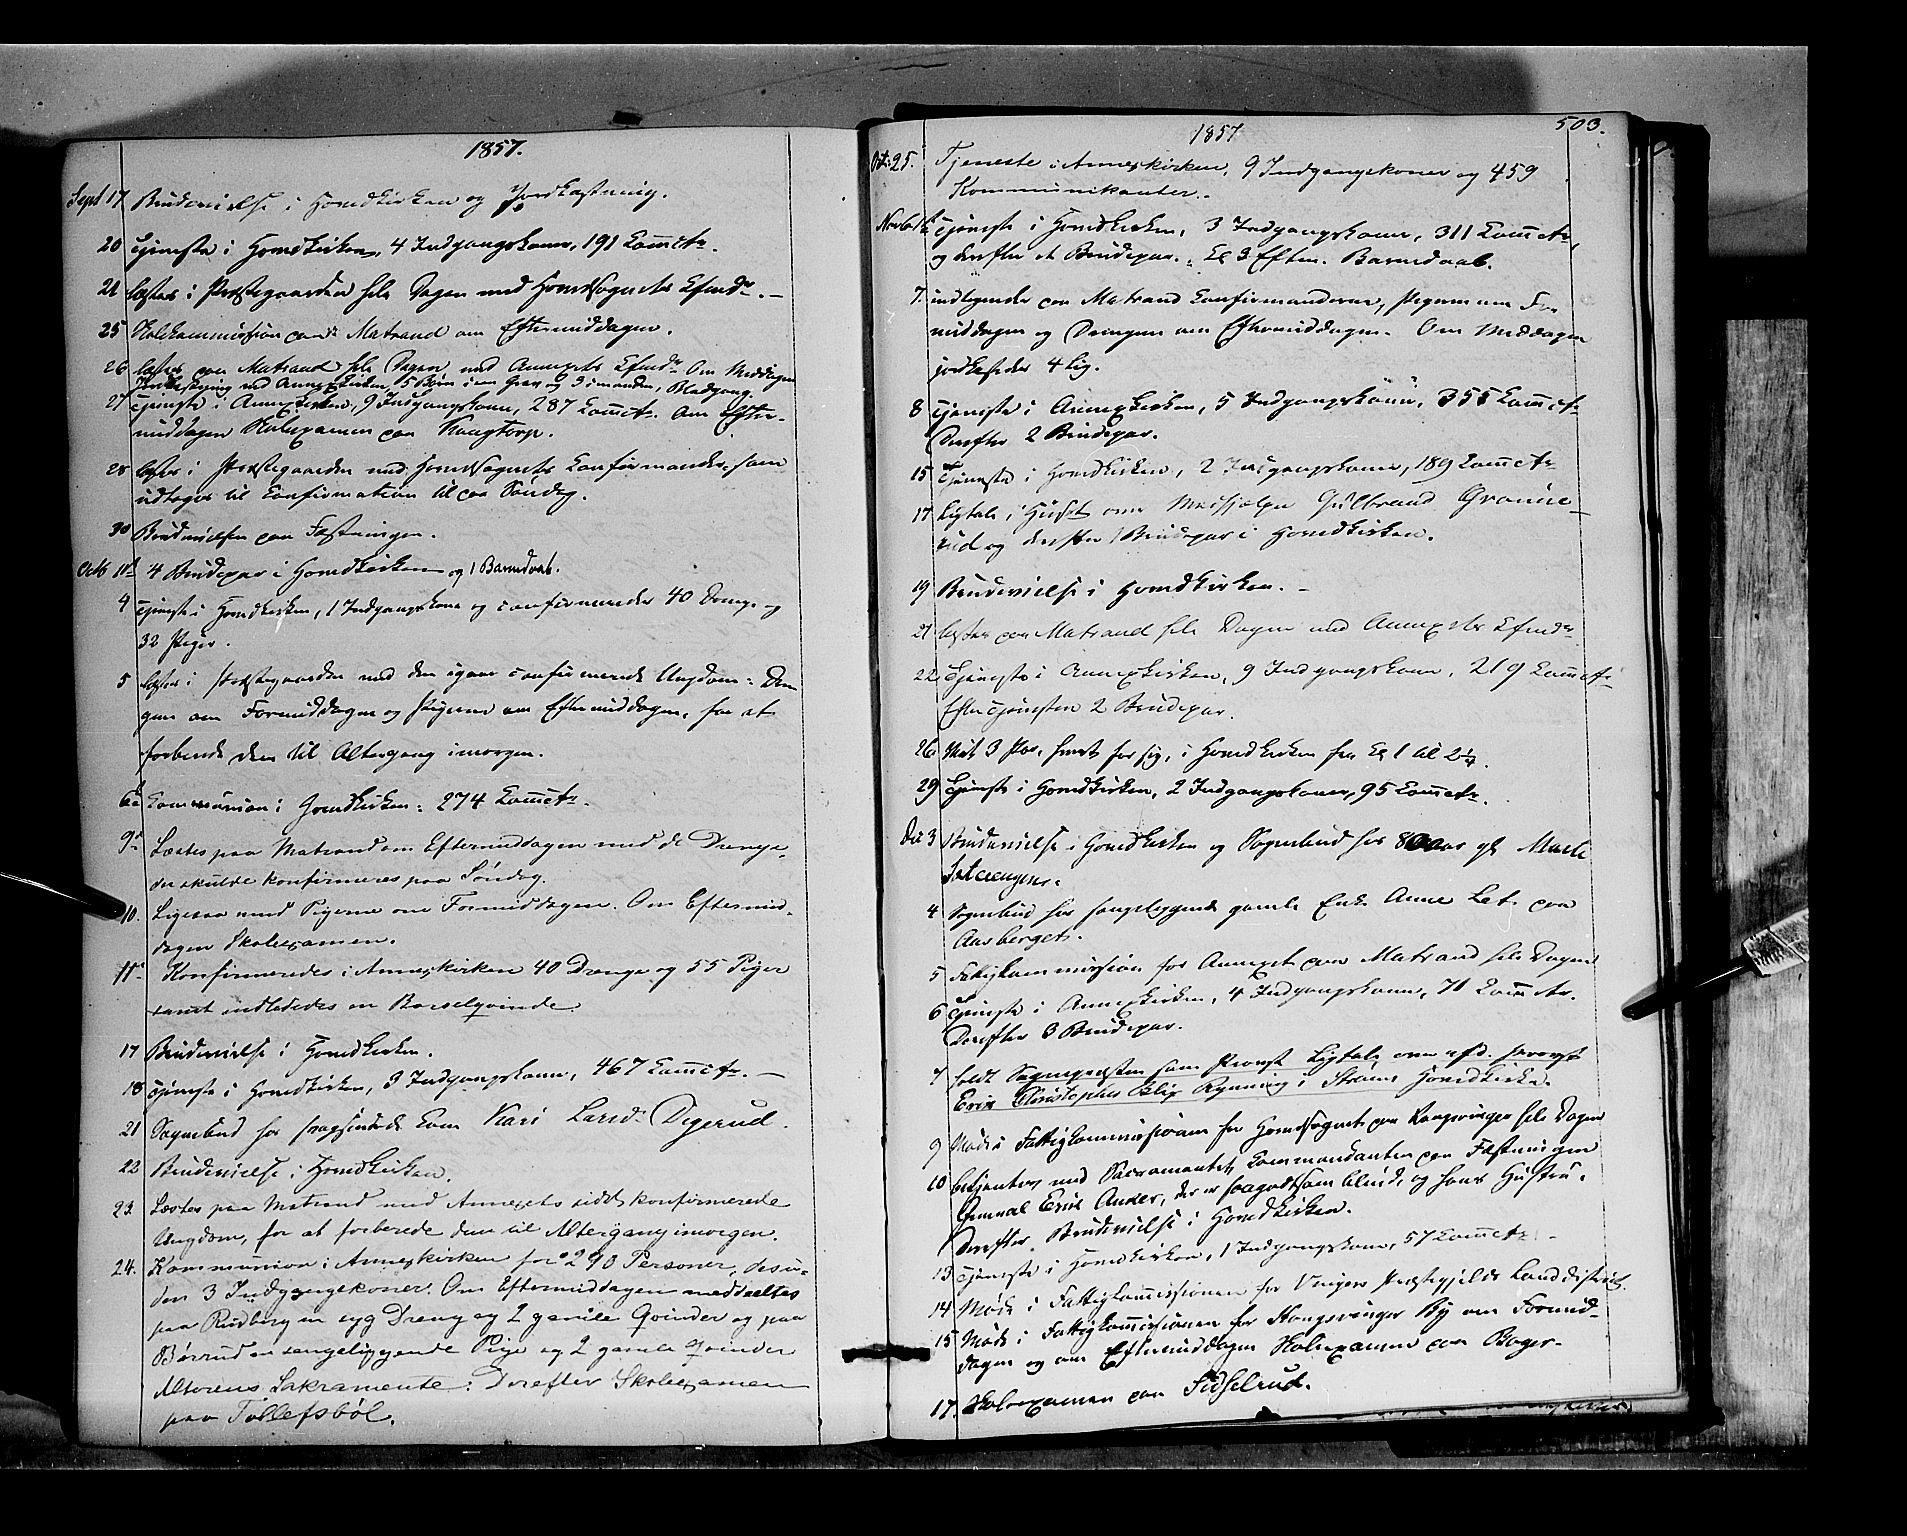 1857.
Sept 17 Brudevielse i Hovedkirken og Jordkastning.
20 Tjeneste i Hovedkirken, 4 Indgangskoner, 191 Commctr.
21 læstes i Præstegaarden hele Dagen med Hovedsognets Cfmdr. -
25 Skolekommission paa Matrand om Eftermiddagen.
26 læstes paa Matrand hele Dagen med Annexets Cfmdr. Om Middagen
Jordkastning ved Annexkirken, 5 Børn i en Grav og 3 i manden, Blodgang.
27 Tjeneste i Annexkirken, 9 Indgangskoner, 287 Commctr. Om Efter-
middagen Skolexamen paa Kongtorp.
28 læstes i Præstegaarden med Hovedsognets Confirmander, som
udtoges til Confirmation til paa Søndag.
30 Brudevielse paa Fæstningen.
Octb 1st 4 Brudepar i Hovedkirken og 1 Barnedaab.
4 Tjeneste i Hovedkirken, 1 Indgangskone og confirmeredes 40 Drenge og
32 Piger.
5 læstes i Præstegaarden med den igaar confirmerede Ungdom: Dren-
gene om Formiddagen og Pigerne om Eftermiddagen, for at
forberede dem til Altergang imorgen.
6te Communion i Hovedkirken: 274 Commctr.
9de Læstes paa Matrand om Eftermiddagen med de Drenge,
der skulde konfirmeres paa Søndag.
10. Ligesaa med Pigerne om Formiddagen. Om Eftermid-
dagen Skolexamen.
11te Konfirmeredes i Annexkirken 40 Drenge og 55 Piger
samt indlededes en Barselqvinde
17 Brudevielse i Hovedkirken.
18 Tjeneste i Hovedkirken, 3 Indgangskoner, 467 Commctr. -
21 Sognebud hos Kone Kari Larsd. Digerud.
22 Brudevielse i Hovedkirken.
23. Læstes paa Matrand med Annexets sidst konfirmerede
Ungdom, for at forberede dem til Altergang imorgen.
24. Kommunion i Annexkirken for 290 Personer, desu-
den 3 Indgangskoner. Om Eftermiddagen meddeeltes
paa Rudberg en syg Dreng og 2 gamle Qvinder og paa
Børrud en sengeliggende Pige og 2 gamle Qvinder
Altarens Sakramente. Derefter Skolexamen
paa Tollefsbøl.
1857
503.
Oct. 25. Tjeneste i Annexkirken, 9 Indgangskoner og 459
Kommunikanter.
Novb. 1st Tjeneste i Hovedkirken, 3 Indgangskoner, 311 Commctr,
og derefter et Brudepar. Cl 3 Efterm. Barnedaab.
7. paa Matrand Confirmanderne, Pigerne om For-
middagen og Drengene om Eftermiddagen. Om Middagen
jordfæstedes 4 Lig.
8 Tjeneste i Annexkirken, 5 Indgangskoner, 355 Commctr
Derefter 2 Brudepar.
15 Tjeneste i Hovedkirken, 2 Indgangskoner, 189 Commctr
17 Ligtale i Huset over Medhjelper Gulbrand Granne-
rud og derefter 1 Brudepar i Hovedkirken.
19 Brudevielse i Hovedkirken. -
21 læstes paa Matrand hele Dagen med Annexets Cfmdr
22 Tjeneste i Annexkirken, 9 Indgangskoner, 219 Commctr
Efter Tjenesten 2 Brudepar.
26 Viet 3 Par, hvert for sig, i Hovedkirken fra Cl 1 til 2¼.
29 Tjeneste i Hovedkirken, 2 Indgangskoner, 95 Commctr.
Dec 3 Brudevielse i Hovedkirken og Sognebud hos 80 Aar gl. Marte
Sæterengen.
4 Sognebud hos sengeliggende gamle Enke Anne Let paa
Aasberget.
5 Fattigkommission for Annexet paa Matrand hele Dagen
6 Tjeneste i Annexkirken, 4 Indgangskoner, 71 Commctr.
Derefter 3 Brudepar.
7 holdt Sognepræsten som Provst Ligtale over afd. Provst
Erik Christopher Blix Rynning i Strøms Hovedkirke.
9 Møde i Fattigkommissionen for Hovedsognet paa Kongsvinger hele Dagen
10 betjentes med Sacramentet Commandanten paa Fæstningen
General Erik Anker, der er blind, og hans Hustru.
Derefter Brudevielse i Hovedkirken.
13 Tjeneste i Hovedkirken, 1 Indgangskone, 57 Commctr. -
14 Møde i Fattigkommissionen for Vingers Præstegjelds Landdistrict.
15 Møde i Fattigkommissionen for Kongsvinger By om Formid-
dagen og om Eftermiddagen Skolexamen paa Roger-
17. Skolexamen paa Sidselrud.